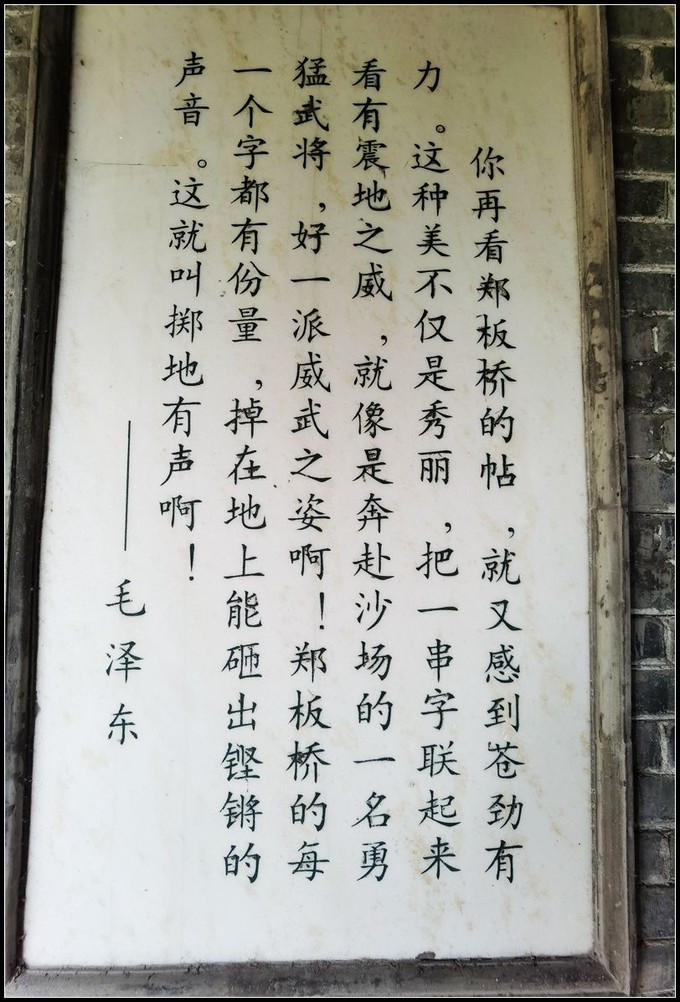 你再看郑板桥的帖，就又感到苍劲有
力。这种美不仅是秀丽，把一串字联起来
看有震地之威，就像是奔赴沙场的一名勇
猛武将，好一派威武之姿啊！郑板桥的每
一个字都有份量，掉在地上能砸出铿锵的
声音。这就叫掷地有声啊！
——毛泽东